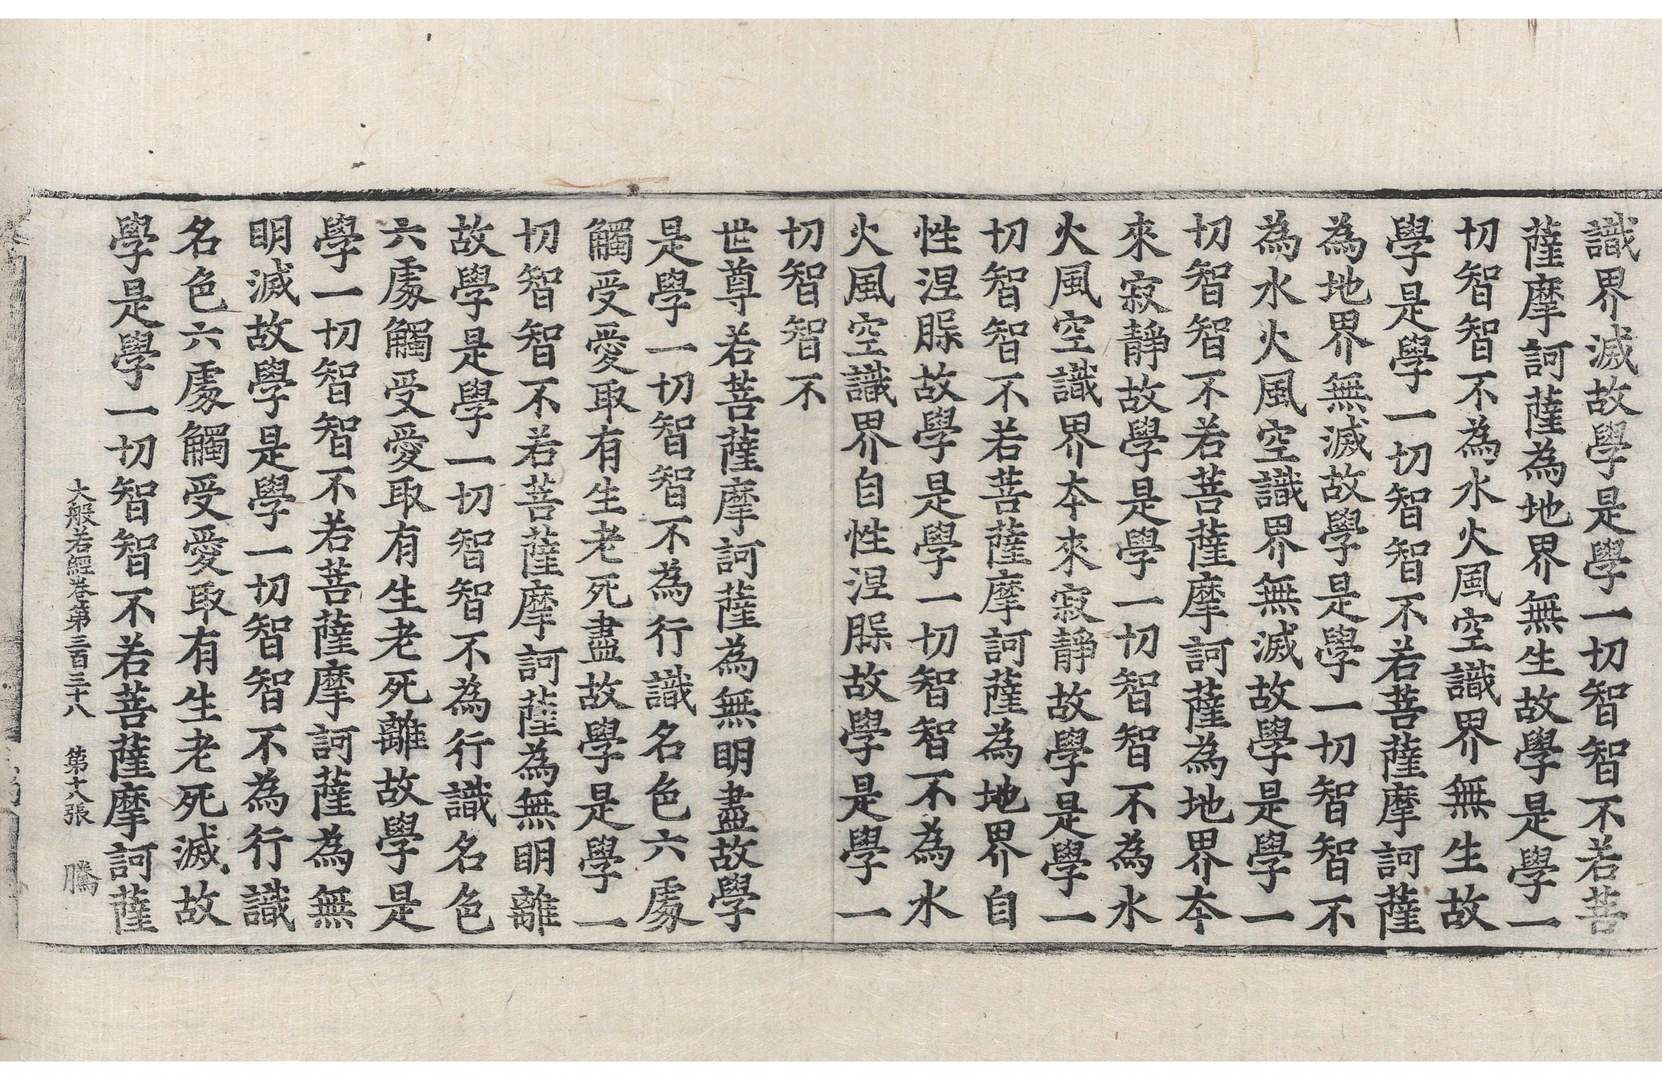 識界滅故學是學一切智智不若菩
薩摩訶薩為地界無生故學是學一
切智智不為水火風空識界無生故
學是學一切智智不若菩薩摩訶薩
為地界無滅故學是學一切智智不
為水火風空識界無滅故學是學一
切智智不若菩薩摩訶薩為地界本
來寂靜故學是學一切智智不為水
火風空識界本來寂靜故學是學一
切智智不若菩薩摩訶薩為地界自
性涅槃故學是學一切智智不為水
火風空識界自性涅槃故學是學一
切智智不
世尊若菩薩摩訶薩為無明盡故學
是學一切智智不為行識名色六處
觸受愛取有生老死盡故學是學一
切智智不若菩薩摩訶薩為無明離
故學是學一切智智不為行識名色
六處觸受愛取有生老死離故學是
學一切智智不若菩薩摩訶薩為無
明滅故學是學一切智智不為行識
名色六處觸受愛取有生老死滅故
學是學一切智智不若菩薩摩訶薩
大般若經卷第三百三十八 第十八張 騰